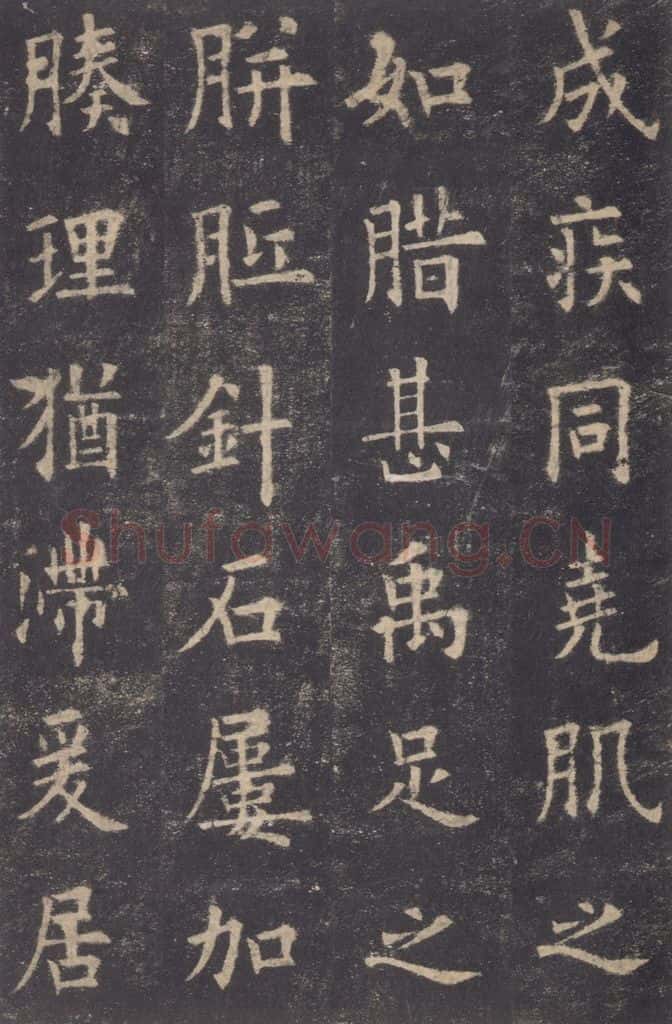 成疾同堯肌之
如腊甚禹足之
胼胝針石屢加
腠理猶滯爰居
Shufawang.CN